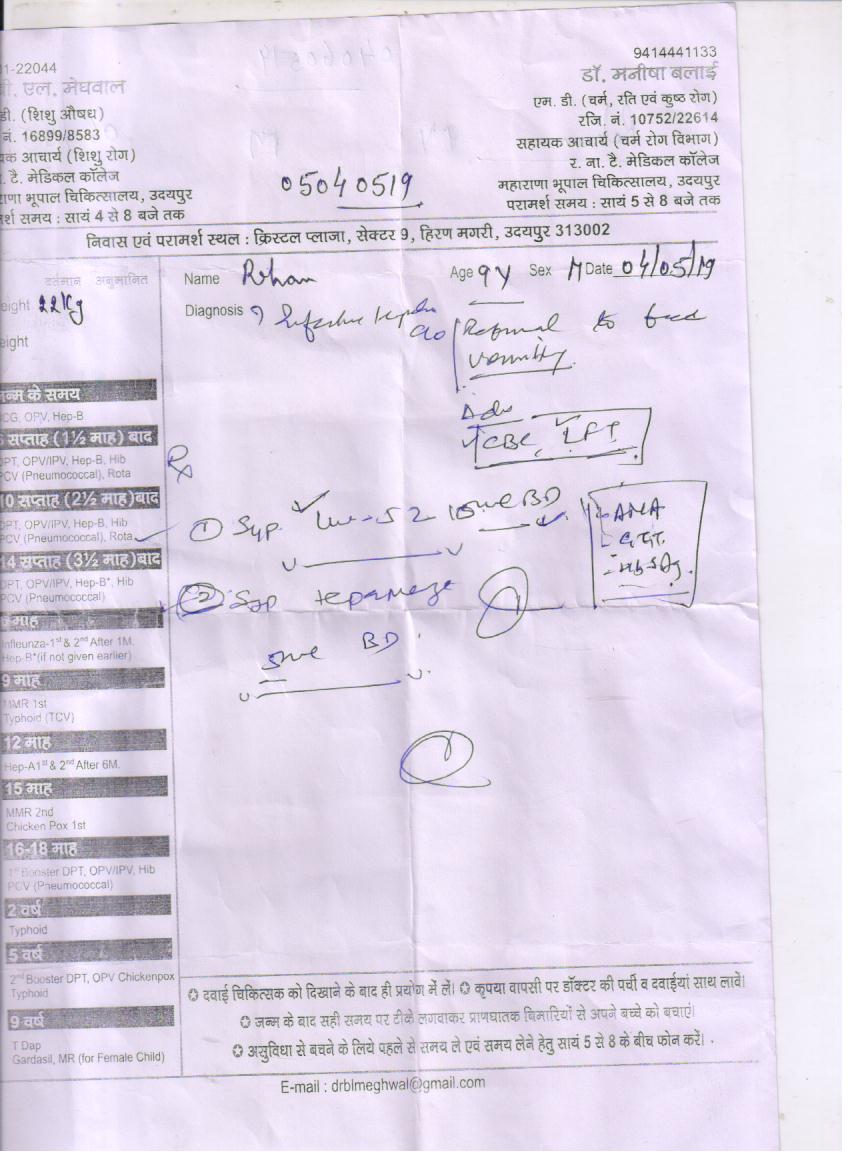 01-22044
9414441133
. एल. मेघवाल
डॉ. मनीषा बलाई
डी. (शिशु औषध)
एम. डी. (चर्म, रति एवं कुष्ठ रोग)
नं. 16899/8583
रजि. नं. 10752/22614
क आचार्य (शिशु रोग)
सहायक आचार्य (चर्म रोग विभाग)
. टै. मेडिकल कॉलेज
र. ना. टै. मेडिकल कॉलेज
राणा भूपाल चिकित्सालय, उदयपुर
05040519
महाराणा भूपाल चिकित्सालय, उदयपुर
र्श समय : सायं 4 से 8 बजे तक
परामर्श समय : सायं 5 से 8 बजे तक
निवास एवं परामर्श स्थल : क्रिस्टल प्लाजा, सेक्टर 9, हिरण मगरी, उदयपुर 313002
वर्तमान अनुमानित
Name Rehan Age 9Y Sex M Date 04/05/19
eight 22Kg
Diagnosis ? Infective
c/o Refusal to feed
vomiting
eight
Adv
CBC, LFT
- ANA
- GGT
- HbsAg
Rx
① Syp. Liv-52 10ml BD
② Syp
5ml BD
जन्म के समय
CG, OPV, Hep-B
सप्ताह (1½ माह) बाद
DPT, OPV/IPV, Hep-B, Hib
PCV (Pneumococcal), Rota
10 सप्ताह (2½ माह) बाद
DPT, OPV/IPV, Hep-B, Hib
PCV (Pneumococcal), Rota
14 सप्ताह (3½ माह) बाद
DPT, OPV/IPV, Hep-B*, Hib
PCV (Pneumococcal)
माह
Infleunza-1st & 2nd After 1M.
Hep-B*(if not given earlier)
9 माह
MMR 1st
Typhoid (TCV)
12 माह
Hep-A1st & 2nd After 6M.
15 माह
MMR 2nd
Chicken Pox 1st
16-18 माह
1st Booster DPT, OPV/IPV, Hib
PCV (Pneumococcal)
2 वर्ष
Typhoid
5 वर्ष
2nd Booster DPT, OPV Chickenpox
Typhoid
9 वर्ष
T Dap
Gardasil, MR (for Female Child)
✪ दवाई चिकित्सक को दिखाने के बाद ही प्रयोग में लें। ✪ कृपया वापसी पर डॉक्टर की पर्ची व दवाईयां साथ लावें।
✪ जन्म के बाद सही समय पर टीके लगवाकर प्राणघातक बिमारियों से अपने बच्चे को बचाएं।
✪ असुविधा से बचने के लिये पहले से समय ले एवं समय लेने हेतु सायं 5 से 8 के बीच फोन करें।
E-mail : drblmeghwal@gmail.com